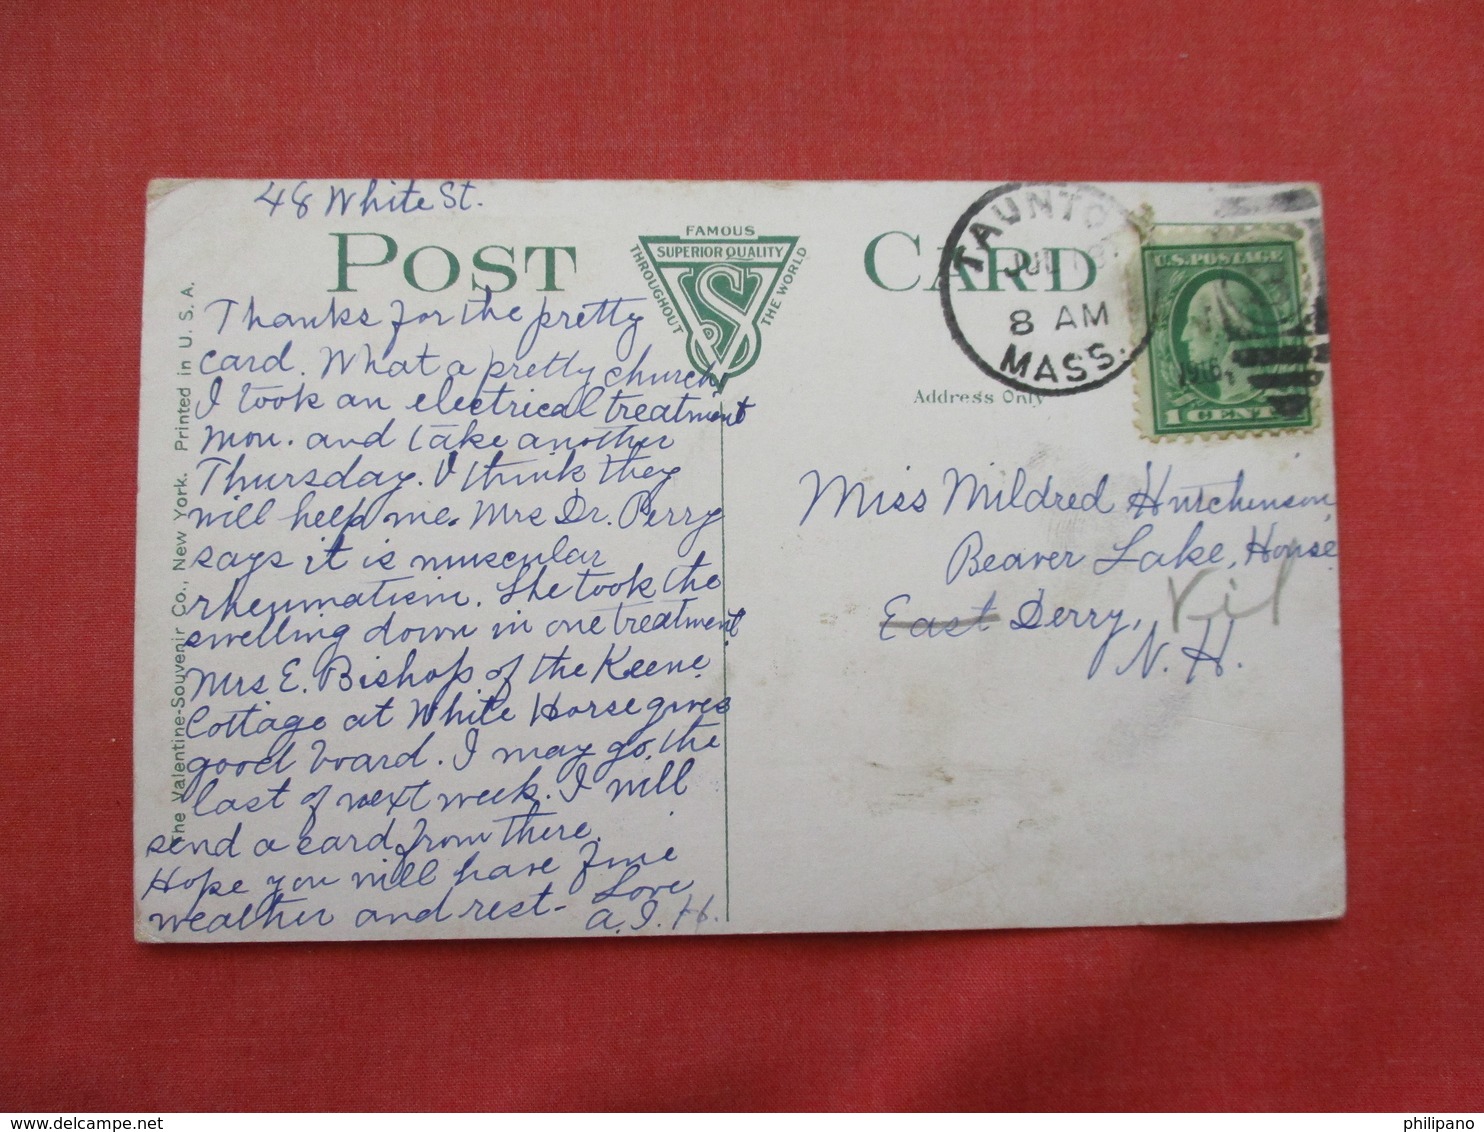 48 White St.
POST CARD
FAMOUS
THROUGHOUT
THE WORLD
SUPERIOR QUALITY
VS
TAUNTON
8 AM
MASS.
U.S. POSTAGE
1916
1 CENT
Address Only
The Valentine-Souvenir Co., New York. Printed in U. S. A.
Thanks for the pretty
card. What a pretty church
I took an electrical treatment
Mon. and take another
Thursday. I think they
will help me. Mrs Dr. Perry
says it is muscular
rheumatism. She took the
swelling down in one treatment
Mrs E. Bishop of the Keene
Cottage at White Horse gives
good board. I may go, the
last of next week. I will
send a card from there.
Hope you will have fine
weather and rest- Love
A.I.H.
Miss Mildred Hutchinson
Beaver Lake, House
East Derry,
N. H.
delcampe.net
philipano